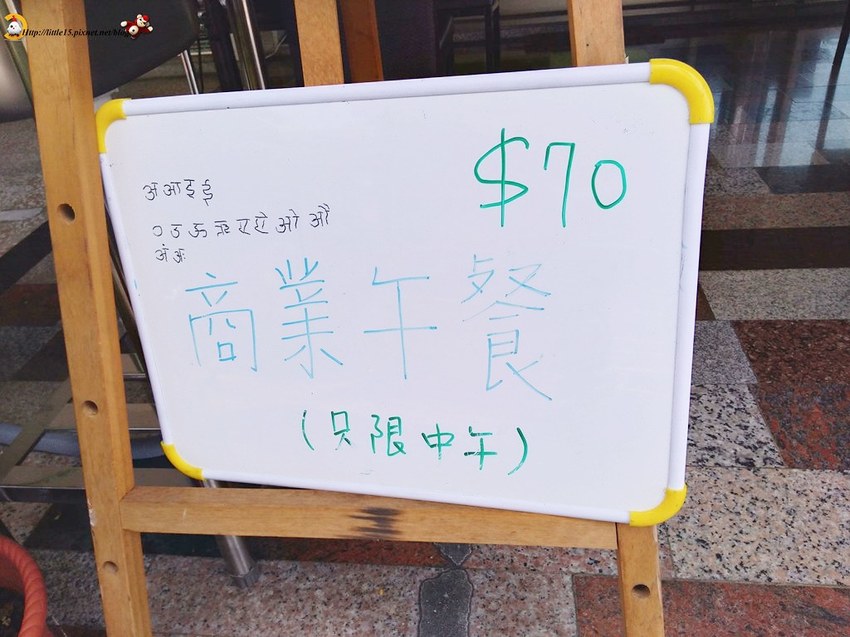 Http://little15.pixnet.net/blog
$70
अ आ इ ई
० उ ऊ ऋ ए ऐ ओ औ
अं अः
商業午餐
(只限中午)